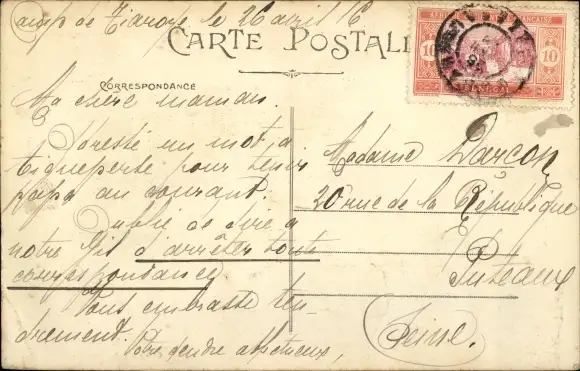 Camp de Tiaroye le 26 avril 16
CARTE POSTALE
AFRIQUE FRANÇAISE
10 10
SÉNÉGAL
CORRESPONDANCE
Ma chère maman.
un mot à
pour tenir
papa au courant.
de dire à
notre fils d'arrêter toute
correspondance
Vous embrasse ten-
drement.
Votre tendre
Madame Darçon
20 rue de la République
Puteaux
Seine.